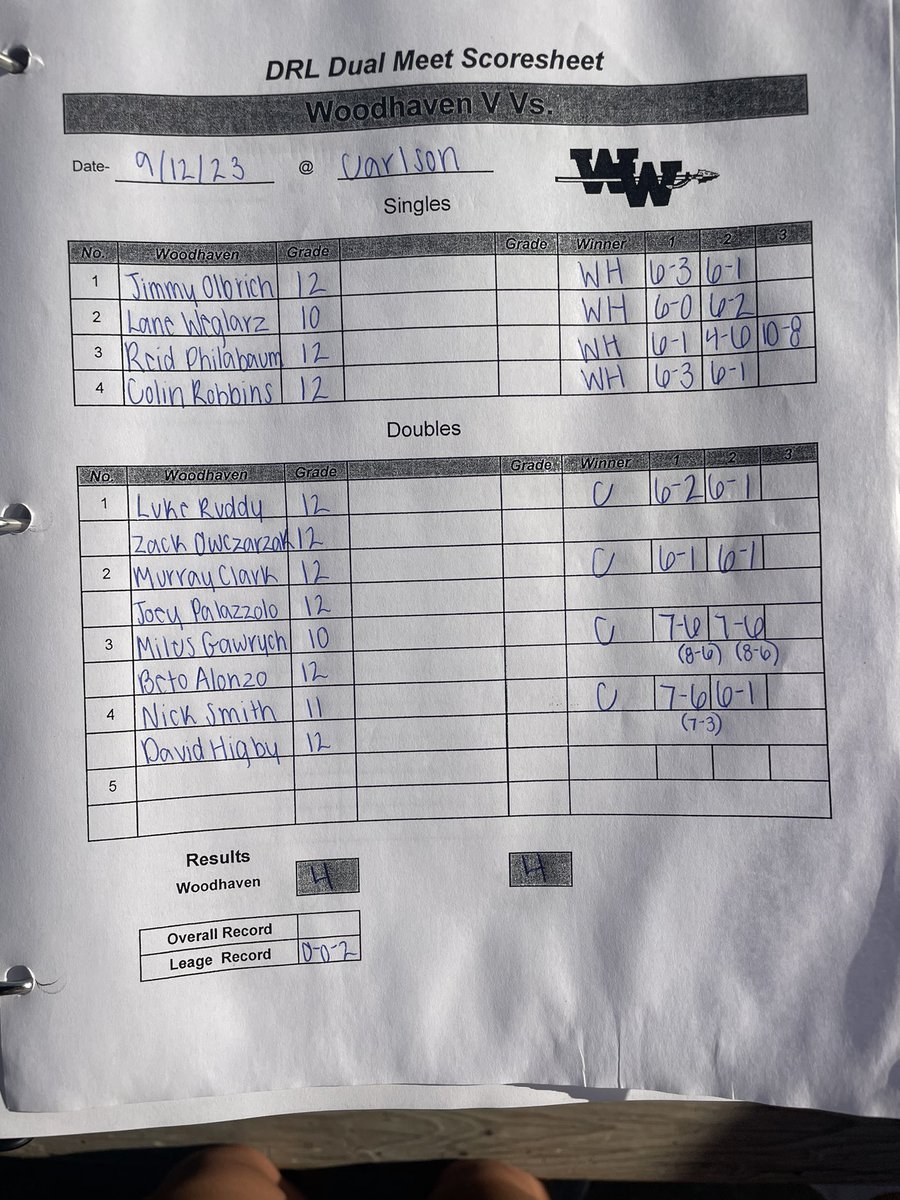 DRL Dual Meet Scoresheet
Woodhaven V Vs.
Date- 9/12/23 @ Carlson
WW
Singles
No. Woodhaven Grade Grade Winner 1 2 3
1 Jimmy Olbrich 12 WH 6-3 6-1
2 Lane Weglarz 10 WH 6-0 6-2
3 Reid Philabaum 12 WH 6-1 4-6 10-8
4 Colin Robbins 12 WH 6-3 6-1
Doubles
No. Woodhaven Grade Grade Winner 1 2 3
1 Luke Ruddy 12 C 6-2 6-1
Zack Owczarzak 12
2 Murray Clark 12 C 6-1 6-1
Joey Palazzolo 12
3 Milos Gawrych 10 C 7-6 7-6
(8-6) (8-6)
Beto Alonzo 12
4 Nick Smith 11 C 7-6 6-1
(7-3)
David Higby 12
5
Results
Woodhaven 4 4
Overall Record
Leage Record 0-0-2